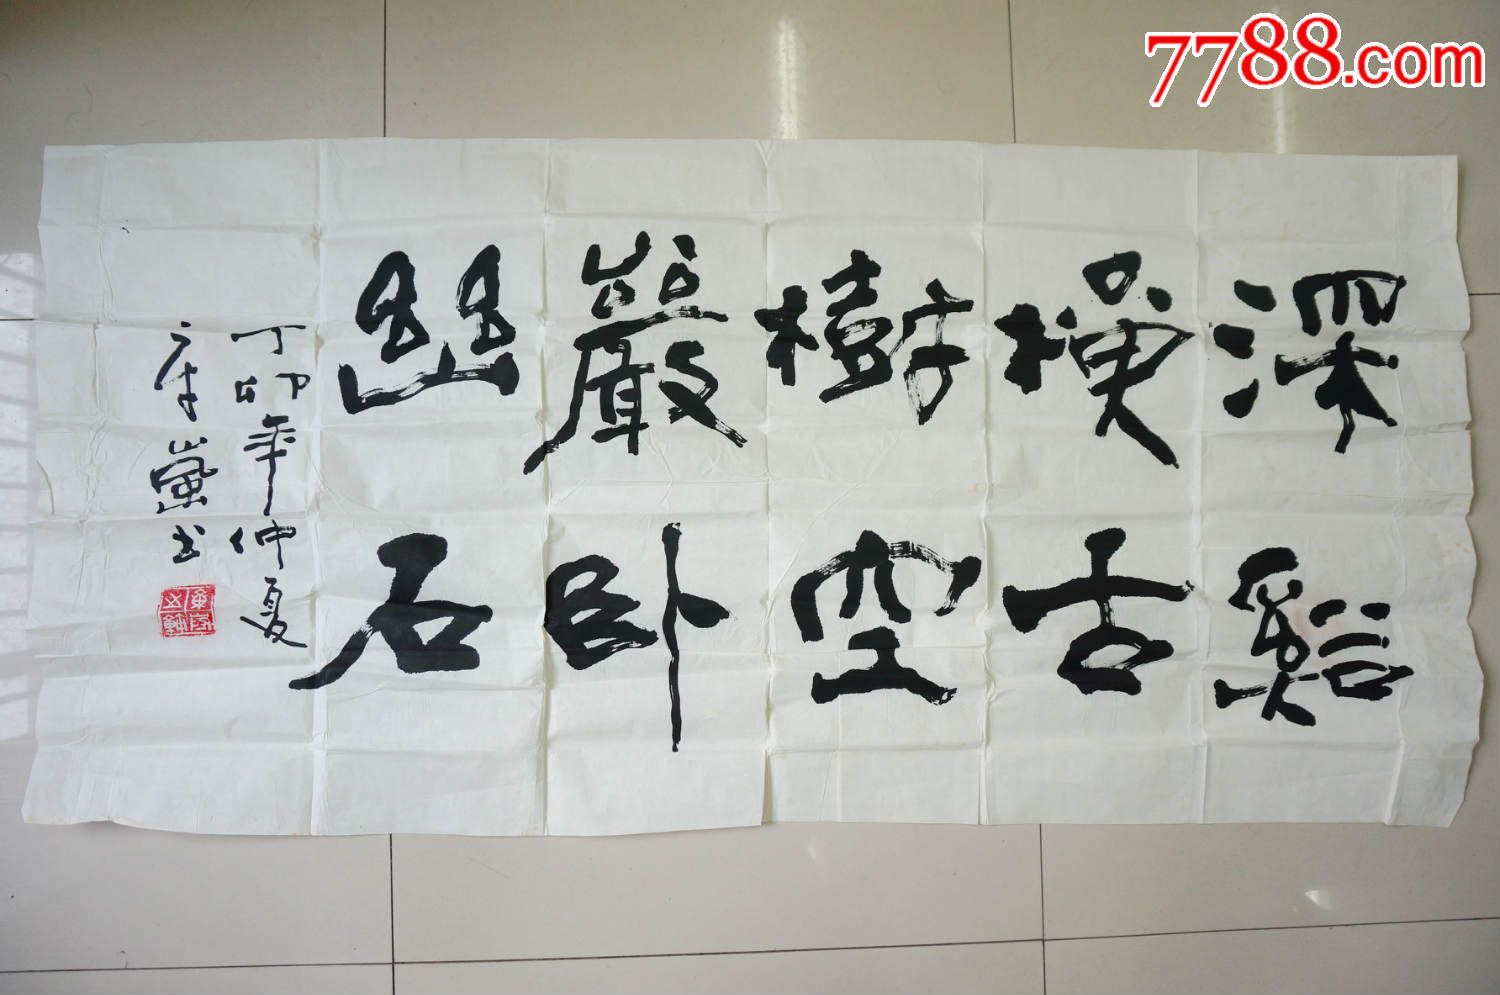 7788.com
深谿
橫古
樹空
巖卧
幽石
丁卯年仲夏
书